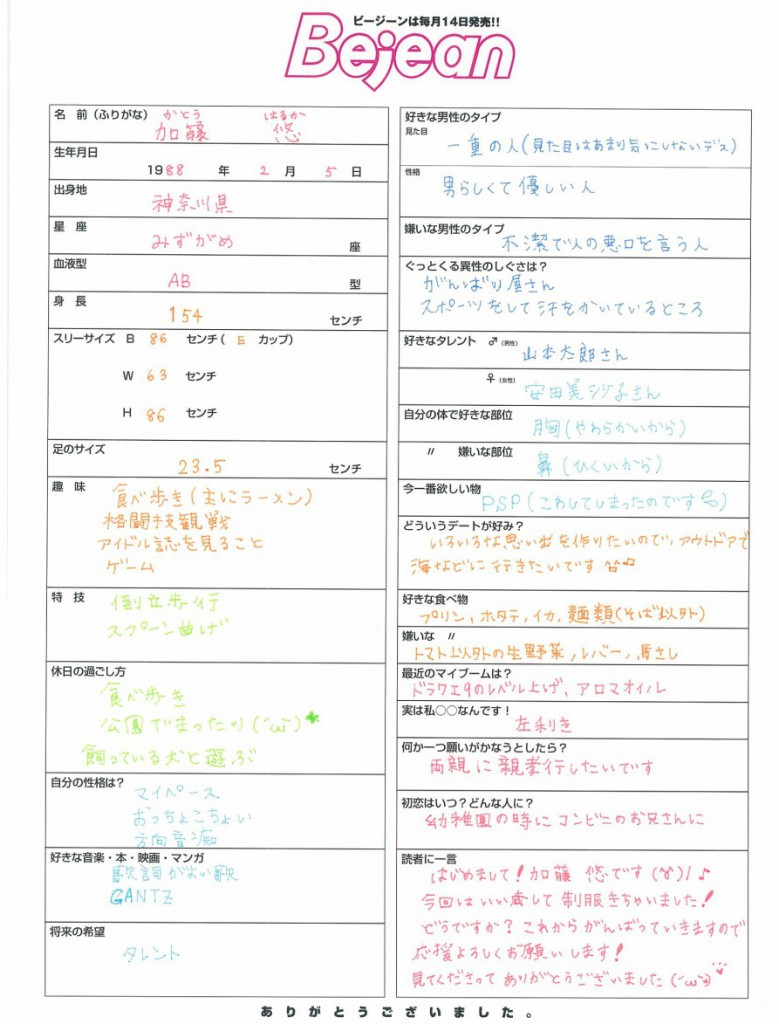 ビージーンは毎月14日発売!!
Bejean
名 前 (ふりがな) かとう はるか
加藤 悠
生年月日
1988 年 2 月 5 日
出身地
神奈川県
星 座
みずがめ 座
血液型
AB 型
身 長
154 センチ
スリーサイズ B 86 センチ( E カップ)
W 63 センチ
H 86 センチ
足のサイズ
23.5 センチ
趣 味
食べ歩き(主にラーメン)
格闘技観戦
アイドル誌を見ること
ゲーム
特 技
倒立歩行
スプーン曲げ
休日の過ごし方
食べ歩き
公園でまったり(´ω`)
飼っている犬と遊ぶ
自分の性格は?
マイペース
おっちょこちょい
方向音痴
好きな音楽・本・映画・マンガ
歌詞がよい歌
GANTZ
将来の希望
タレント
好きな男性のタイプ
見た目
一重の人(見た目はあまり気にしないデス)
性格
男らしくて優しい人
嫌いな男性のタイプ
不潔で人の悪口を言う人
ぐっとくる異性のしぐさは?
がんばり屋さん
スポーツをして汗をかいているところ
好きなタレント ♂(男性)
山本太郎さん
♀(女性)
安田美沙子さん
自分の体で好きな部位
胸(やわらかいから)
〃 嫌いな部位
鼻(ひくいから)
今一番欲しい物
PSP(こわしてしまったのです)
どういうデートが好み?
いろいろな思い出を作りたいので、アウトドアで
海などに行きたいです♫
好きな食べ物
プリン、ホタテ、イカ、麺類(そば以外)
嫌いな 〃
トマト以外の生野菜、レバー、馬さし
最近のマイブームは?
ドラクエ9のレベル上げ、アロマオイル
実は私○○なんです!
左利き
何か一つ願いがかなうとしたら?
両親に親孝行したいです
初恋はいつ?どんな人に?
幼稚園の時にコンビニのお兄さんに
読者に一言
はじめまして!加藤 悠です(°∀°)/♪
今回はいい歳して制服きちゃいました!
どうですか?これからがんばっていきますので
応援よろしくお願いします!
見てくださってありがとうございました(´ω`)
ありがとうございました。